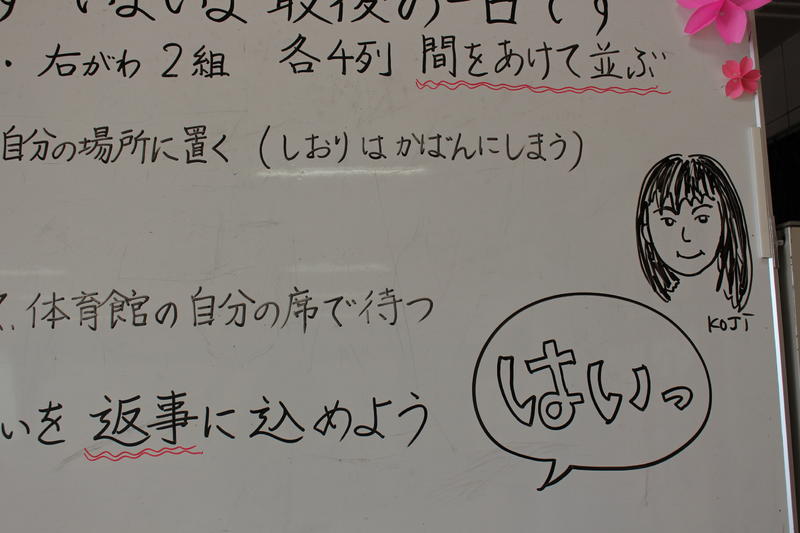 いよいよ最後の一日です
・右がわ2組 各4列 間をあけて並ぶ
自分の場所に置く(しおりはかばんにしまう)
KOJI
体育館の自分の席で待つ
はいっ
いを 返事に込めよう